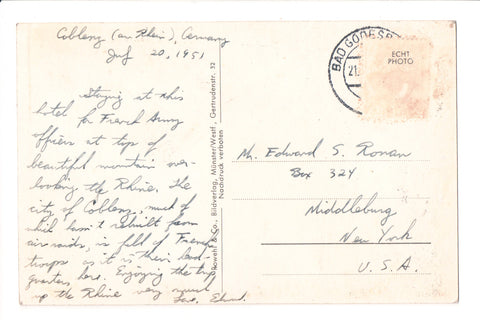 Coblenz (am Rhein), Germany
July 20, 1951
Staying at this
hotel for French Army
officers at top of
beautiful mountain over-
looking the Rhine. The
city of Coblenz, much of
which hasn't rebuilt from
air raids, is full of French
troops as it is their head-
quarters here. Enjoying the trip
up the Rhine very much
Love, Edward.
& Co., Bildverlag, Münster/Westf., Gertrudenstr. 32
Nachdruck verboten
BAD GODESB
21.
ECHT
PHOTO
Mr. Edward S. Ronan
Box 324
Middleburg
New York
U. S. A.